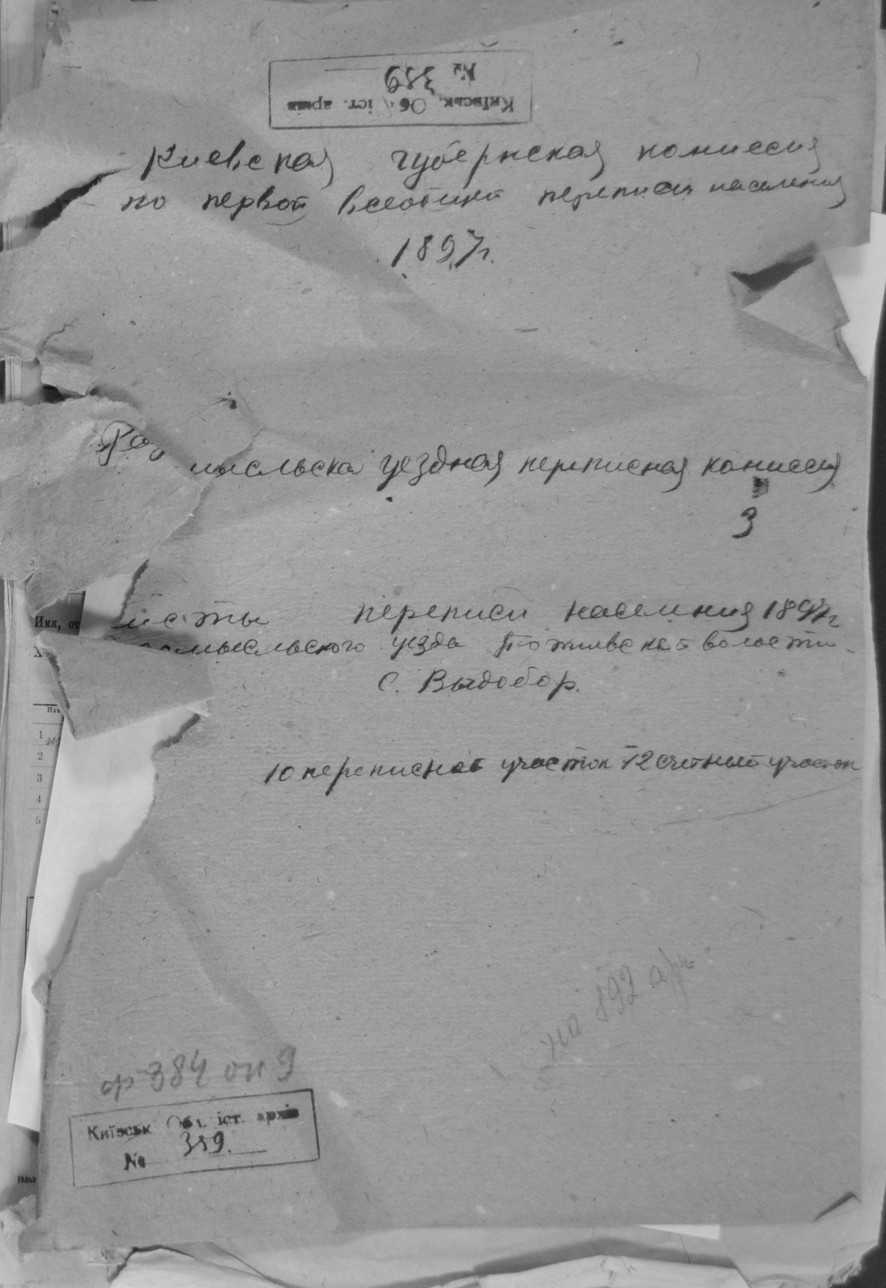 Київськ. Об. іст. архів
№ 359
Киевская губернская комиссия
по первой всеобщей переписи населения
1897г.
Радомысльска уездная переписная комиссия
3
Имя, от
исты переписи населения 1897г
омысльского уезда волости
С. Выдобор.
1
2
3
4
5
10 переписной участок 12 счетный участок
на 192 арк
ф 384 оп 9
Київськ Обл. іст. архів
№ 359.